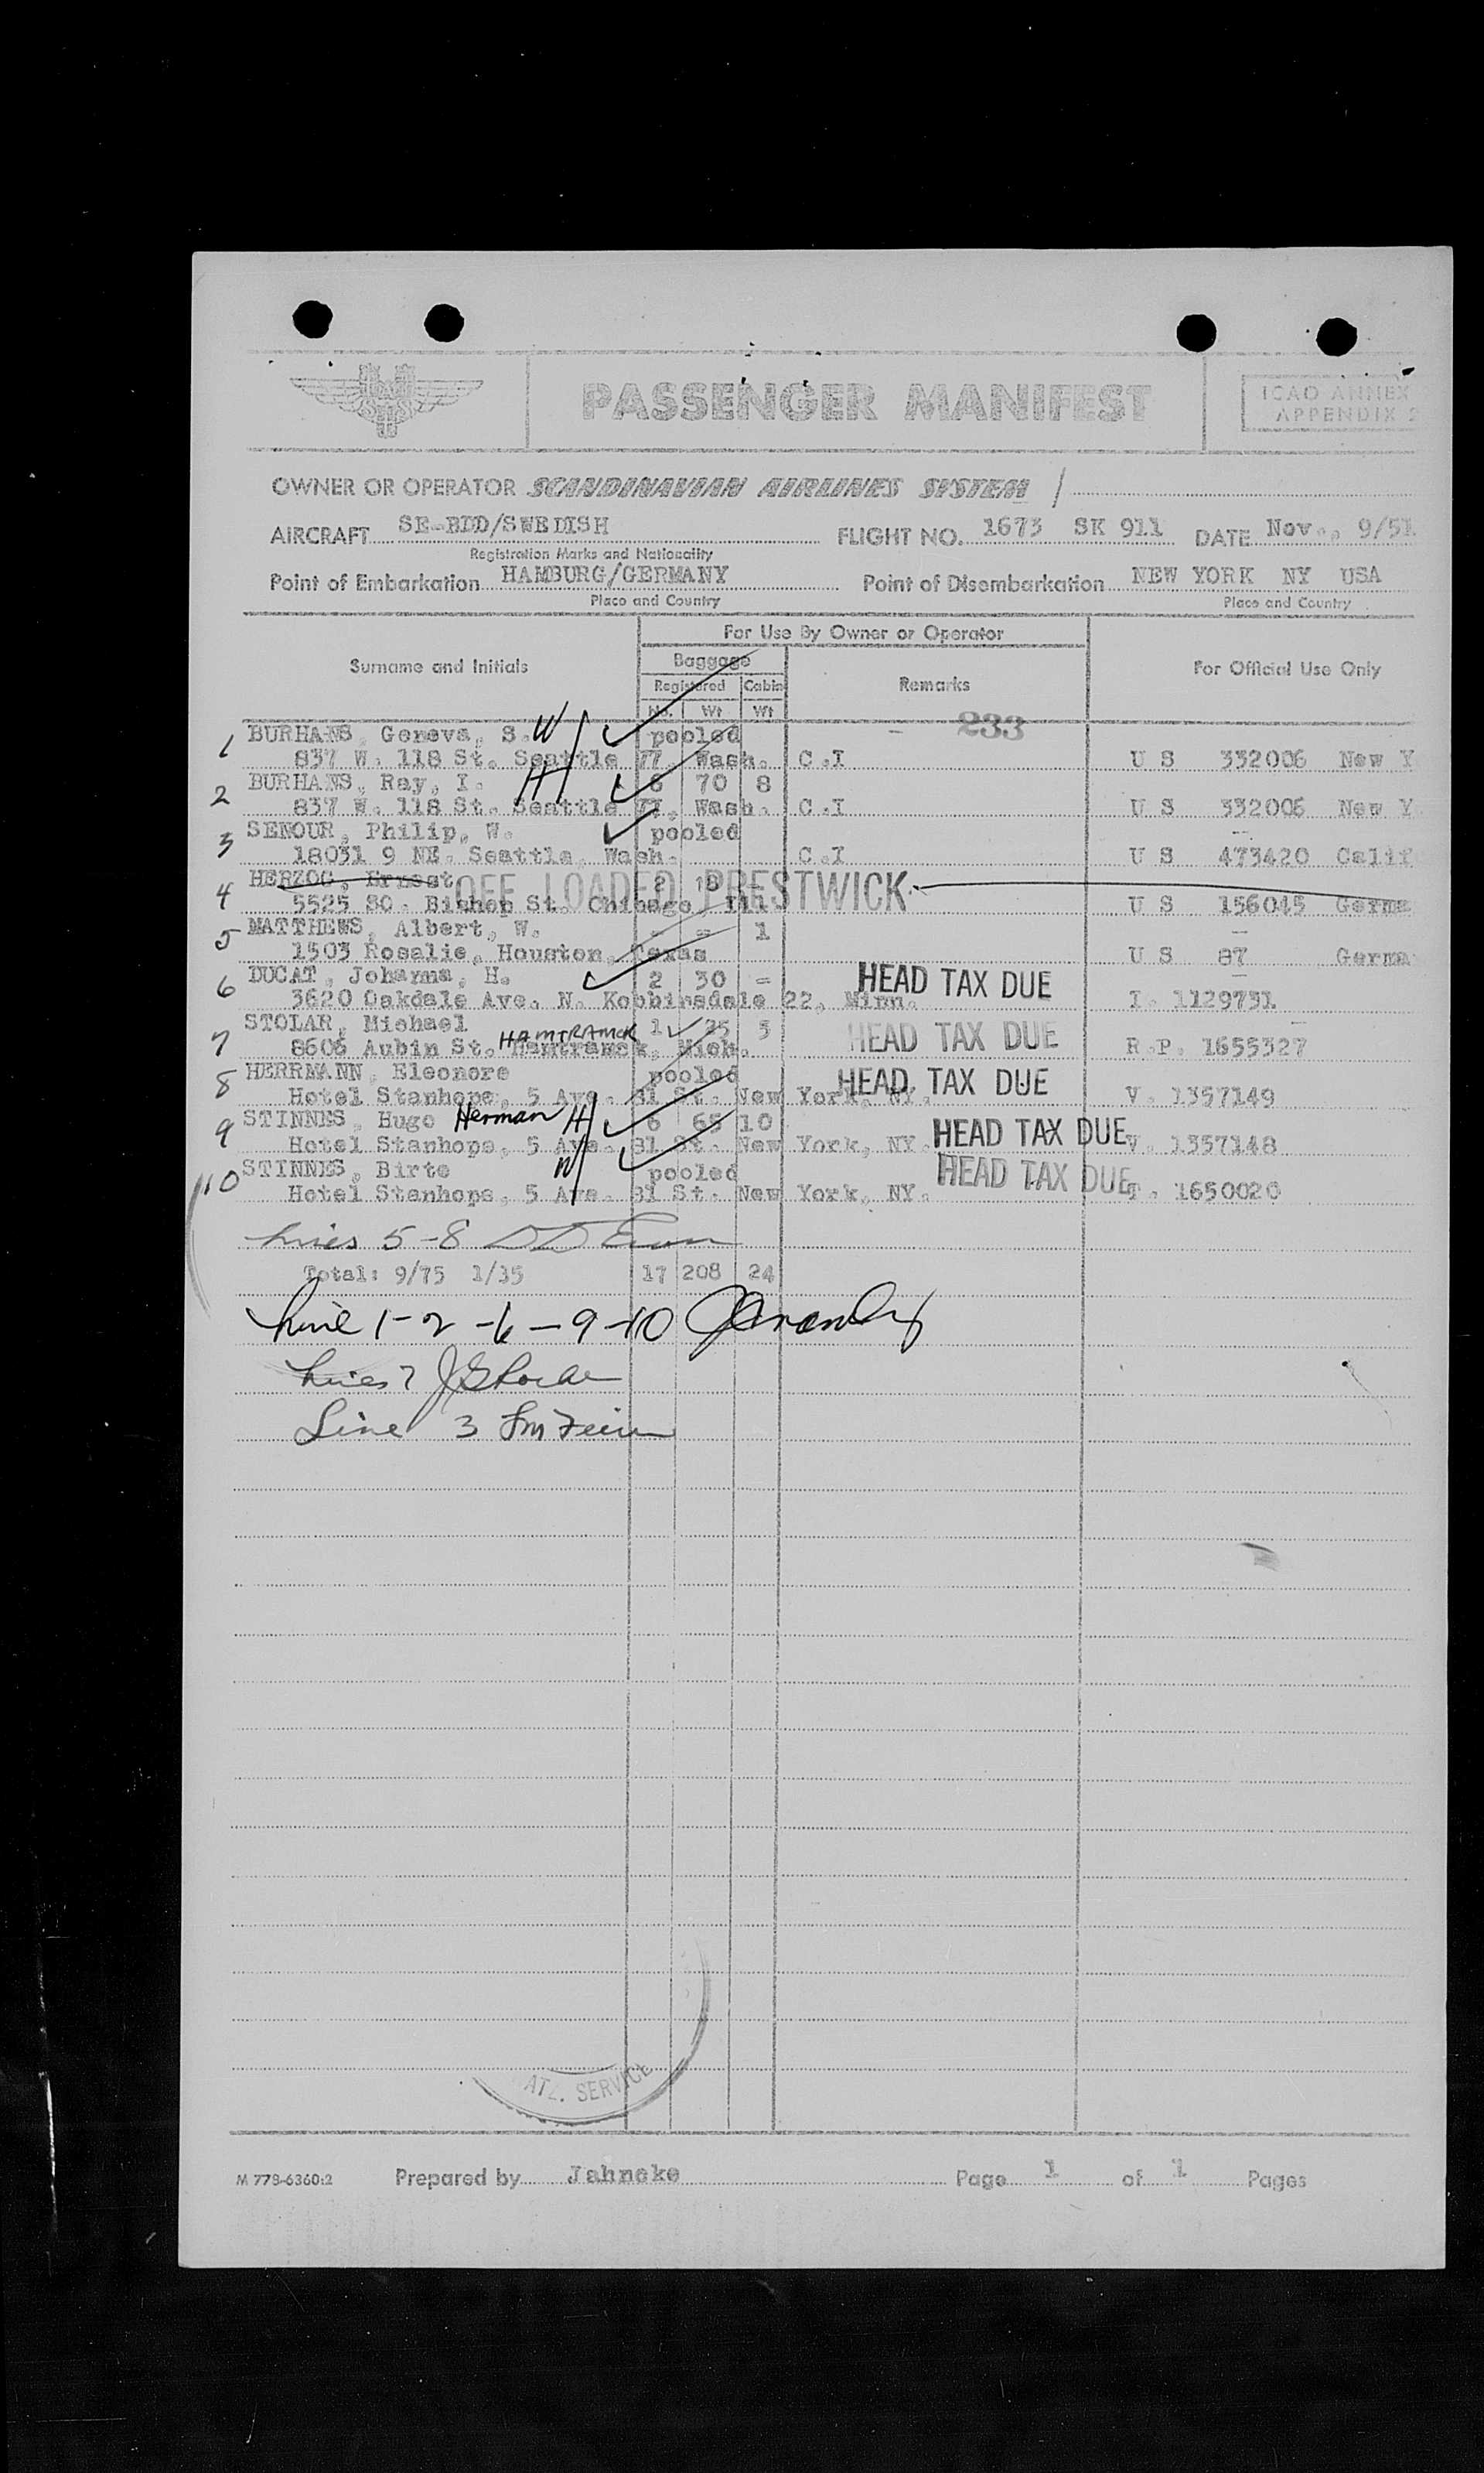 PASSENGER MANIFEST
ICAO ANNEX
APPENDIX 2
OWNER OR OPERATOR SCANDINAVIAN AIRLINES SYSTEM /
AIRCRAFT SE-BDD/SWEDISH FLIGHT NO. 1673 SK 911 DATE Nov., 9/51
Registration Marks and Nationality
Point of Embarkation HAMBURG/GERMANY Point of Disembarkation NEW YORK NY USA
Place and Country Place and Country
For Use By Owner or Operator
Surname and Initials Baggage Remarks For Official Use Only
Registered Cabin
No. Wt Wt
233
1 BURHANS, Geneva, S. W pooled
837 W. 118 St. Seattle 77, Wash. C.I U S 332006 New Y
2 BURHANS, Ray, I. H 6 70 8
837 W. 118 St. Seattle 77, Wash. C.I U S 332006 New Y
3 SENOUR, Philip, W. pooled
18031 9 NE. Seattle, Wash. C.I U S 473420 Calif
4 HERZOG, Ernest 2 18 - OFF LOADED PRESTWICK
5525 SO. Bishop St. Chicago Ill. U S 156045 Germa
5 MATTHEWS, Albert, W. - - 1
1503 Rosalie, Houston, Texas U S 87 Germa
6 DUCAT, Johanna, H. 2 30 - HEAD TAX DUE
3620 Oakdale Ave. N. Kobbinsdale 22, Minn. I. 1129731
7 STOLAR, Michael HAMTRAMCK 1 25 5 HEAD TAX DUE
8606 Aubin St. Hamtramck, Mich. R.P. 1655327
8 HERRMANN, Eleonore pooled HEAD TAX DUE
Hotel Stanhope, 5 Ave. 81 St. New York, NY. V. 1357149
9 STINNES, Hugo Herman H 6 65 10 HEAD TAX DUE
Hotel Stanhope, 5 Ave. 81 St. New York, NY. V. 1357148
10 STINNES, Birte W pooled HEAD TAX DUE
Hotel Stanhope, 5 Ave. 81 St. New York, NY. 1650020
Lines 5-8
Total: 9/75 1/35 17 208 24
Line 1-2-6-9-10
Lines 7
Line 3
SERVICE
M 778-6360:2 Prepared by Jahneke Page 1 of 1 Pages